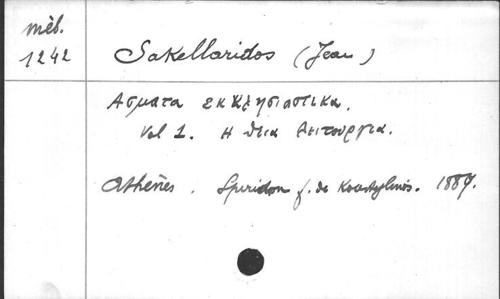 mèb.
1242
Sakellaridos (Jean)
Ασματα εκκλησιαστικα.
Vol 1. Η θεια Λειτουργια.
Athènes. Spiridon f. de 188